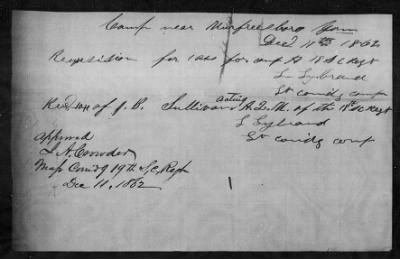 Camp near Murfreesboro Tenn
Dec 11th 1862
Requisition for 1 axe for comp A 19 S C Regt
L Sybrand
Lt comdg comp
Recd of J. B. Sullivan acting A. Q. M. of the 19th S C Regt
L Sybrand
Lt comdg comp
Approved
T. A. Crowder
Majr Comdg 19th S, C, Regt
Dec 11, 1862